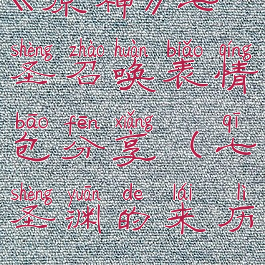 《原神》七
shèng zhào huàn biǎo qíng
圣召唤表情
bāo fēn xiǎng qī
包分享（七
shèng yuān de lái lì
圣渊的来历